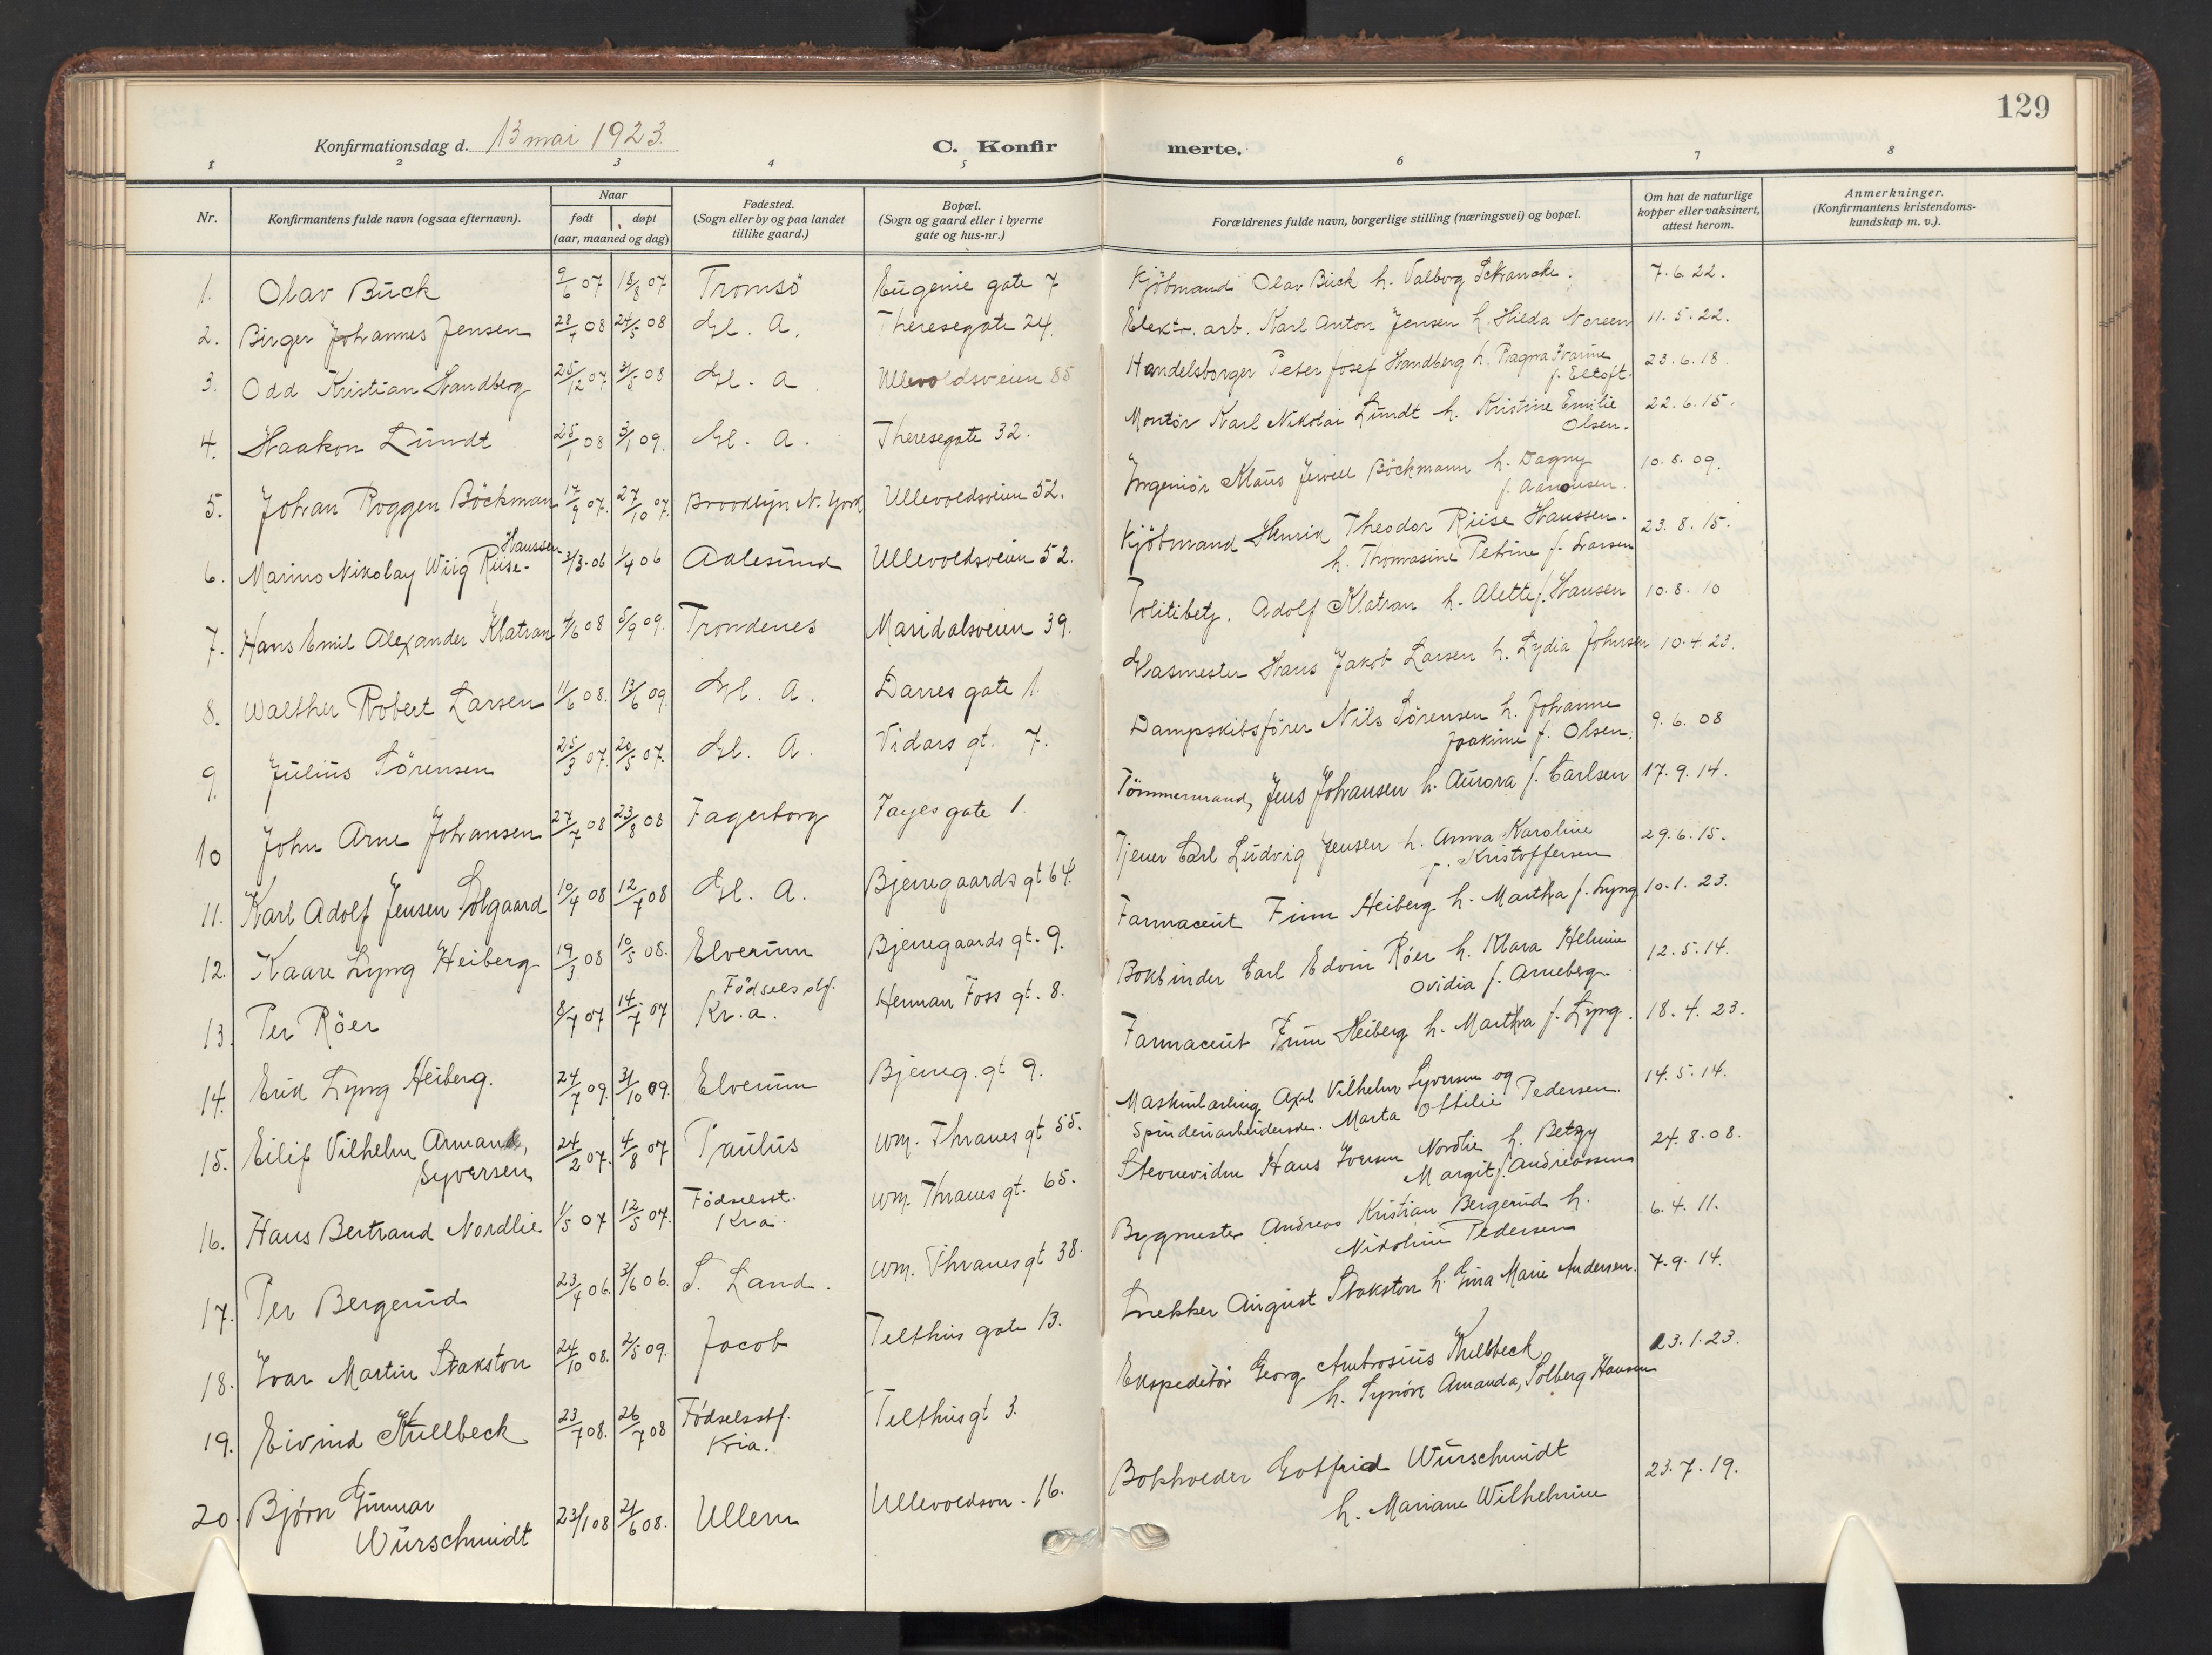 129
Konfirmationsdag d. 13 mai 1923.
C. Konfirmerte.
1 2 3 4 5 6 7 8
Nr.
Konfirmantens fulde navn (ogsaa efternavn).
Naar
født døpt
(aar, maaned og dag)
Fødested.
(Sogn eller by og paa landet
tillike gaard.)
Bopæl.
(Sogn og gaard eller i byerne
gate og hus-nr.)
Forældrenes fulde navn, borgerlige stilling (næringsvei) og bopæl.
Om hat de naturlige
kopper eller vaksinert,
attest herom.
Anmerkninger.
(Konfirmantens kristendoms-
kundskap m. v.).
1. Olav Buck 9/6 07 18/8 07 Tromsö Eugenie gate 7 Kjöbmand Olav Buck h. Valborg Schancke. 7.6.22.
2. Birger Johannes Jensen 28/4 08 24/5 08 Gl. A. Theresegate 24. Elektr. arb. Karl Anton Jensen h. Hilda Noreen 11.5.22.
3. Odd Kristian Strandberg 25/12 07. 31/5 08 Gl. A. Ullevoldsveien 85 Handelsborger Peter Josef Strandberg h. Ragna Ivarine
f. Eltoft. 23.6.18.
4. Haakon Lundt 25/1 08 3/1 09. Gl. A. Theresegate 32. Montör Karl Nikolai Lundt h. Kristine Emilie
Olsen. 22.6.15.
5. Johan Roggen Böckman 17/9 07. 27/10 07. Brooklyn N. York Ullevoldsveien 52. Ingeniör Klaus Jewell Böckmann h. Dagny
f. Aanonsen. 10.8.09.
6. Marino Nikolay Wiig Riise-
Hanssen 3/3-06 1/4 06 Aalesund Ullevoldsveien 52. Kjöbmand Henrik Theodor Riise Hanssen.
h. Thomasine Petrine f. Larsen 23.8.15.
7. Hans Emil Alexander Klatran 4/6 08 5/9 09. Trondenes Maridalsveien 39. Politibetj. Adolf Klatran h. Alette f. Hansen 10.8.10
8. Walther Robert Larsen 11/6 08. 13/6 09. Gl. A. Darres gate 1. Glasmester Hans Jakob Larsen h. Lydia Johnsen 10.4.23.
9. Julius Sörensen 25/3 07. 20/5 07. Gl. A. Vidars gt. 7. Dampskibsförer Nils Sörensen h. Johanne
Joakime f. Olsen. 9.6.08
10 John Arne Johansen 27/7 08 23/8 08 Fagerborg Fayes gate 1. Tömmermand, Jens Johansen h. Aurora f. Carlsen 17.9.14.
11. Karl Adolf Jensen Solgaard 10/4 08 12/7 08 Gl. A. Bjerregaards gt 64. Tjener Carl Ludvig Jensen h. Anna Karoline
f. Kristoffersen 29.6.15.
12. Kaare Lyng Heiberg 19/3 08 10/5 08. Elverum Bjerregaards gt. 9. Farmaceut Finn Heiberg h. Martha f. Lyng 10.1.23.
13. Per Röer 8/7 07 14/7 07 Födselsstf.
Kr.a. Herman Foss gt. 8. Bokbinder Carl Edvin Röer h. Klara Helmine
Ovidia f. Arneberg. 12.5.14.
14. Erik Lyng Heiberg. 24/7 09. 31/10 09. Elverum Bjerreg. gt 9. Farmaceut Finn Heiberg h. Martha f. Lyng. 18.4.23.
15. Eilif Vilhelm Armand,
Syversen 24/2 07. 4/8 07 Paulus WM. Thranes gt 55. Maskinlærling Axel Vilhelm Syversen og
Spinderiarbeiderske. Marta Ottilie Pedersen. 14.5.14.
16. Hans Bertrand Nordlie. 1/5 07 12/5 07. Födselsst.
Kra. WM. Thranes gt. 65. Stevnevidne Hans Iversen Nordlie h. Betzy
Margit f. Andreassen 24.8.08.
17. Per Bergerud 23/4 06. 3/6 06. S. Land. WM. Thranes gt 38. Bygmester Andreas Kristian Bergerud h.
Nikoline Pedersen 6.4.11.
18. Ivar Martin Stakston 24/10 08. 2/5 09. Jacob Telthus gate 13. Snekker August Stakston h. Lina Marie Andersen. 7.9.14.
19. Eivind Kullbeck 23/7 08. 26/7 08 Födselsstf.
Kria. Telthusgt 3. Ekspeditör Georg Ambrosius Kullbeck
h. Synöve Amanda, Solberg Hansen 23.1.23.
20. Björn Gunnar
Würschmidt 23/1 08 21/6 08. Ullern Ullevoldsv. 16. Bokholder Gotfried Würschmidt
h. Mariane Wilhelmine 23.7.19.